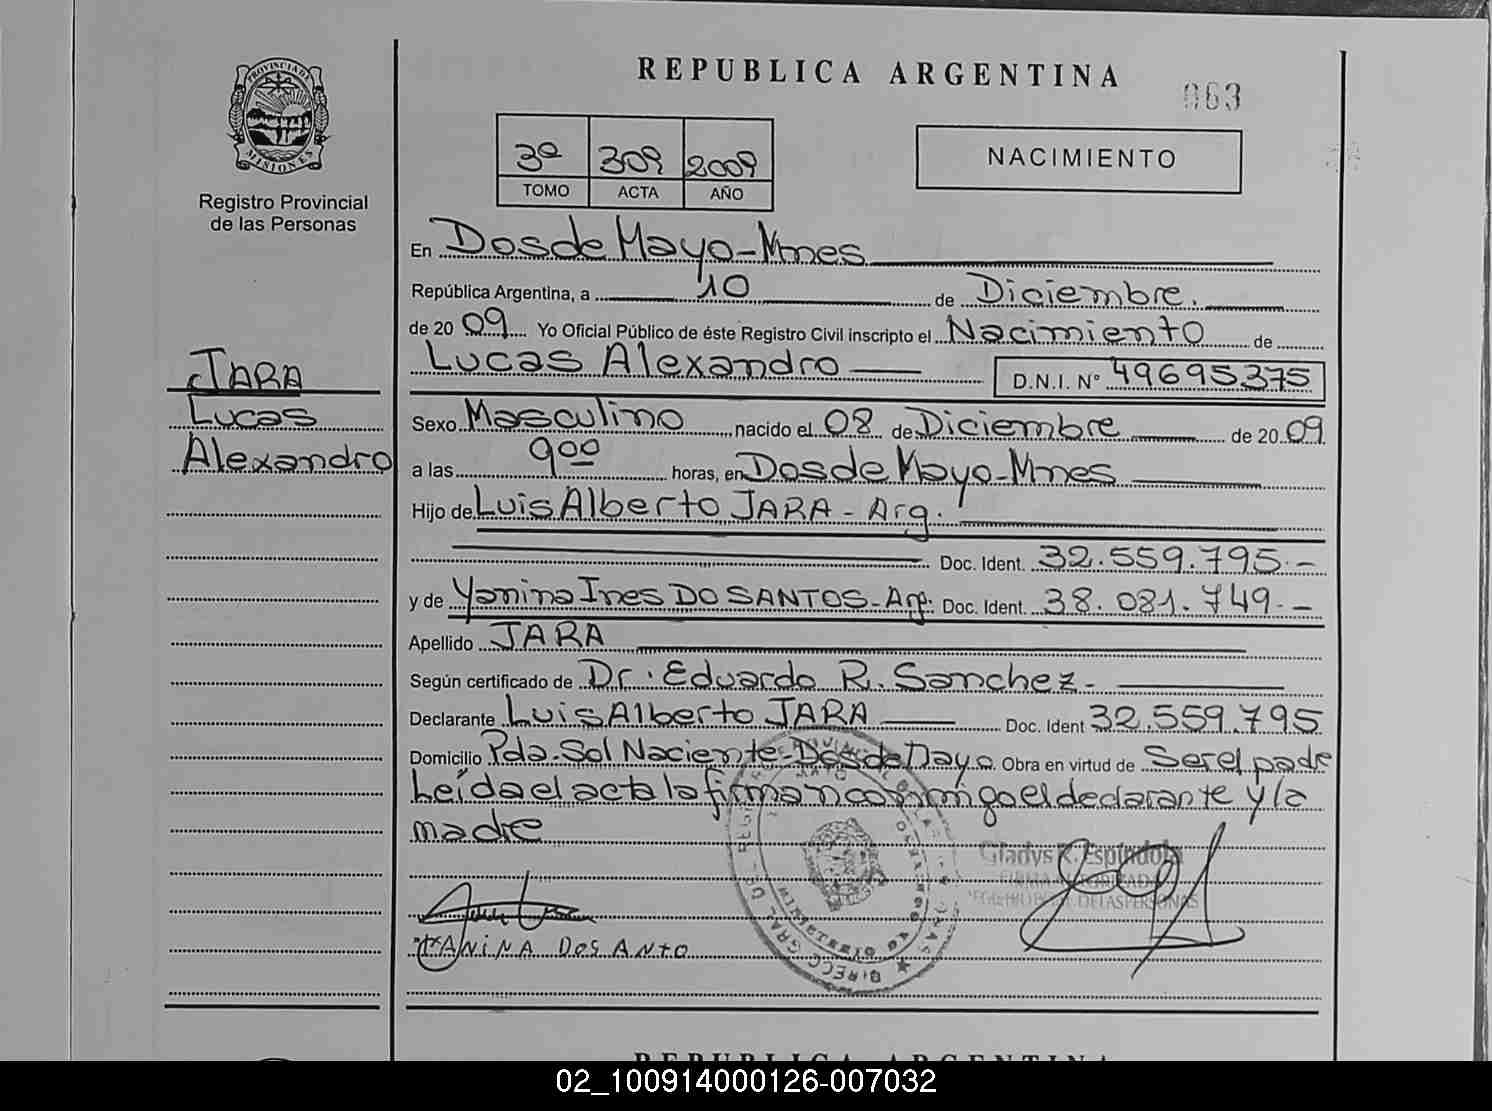 REPUBLICA ARGENTINA
063
PROVINCIA DE
MISIONES
Registro Provincial
de las Personas
3º 309 2009
TOMO ACTA AÑO
NACIMIENTO
En Dos de Mayo-Mnes
República Argentina, a 10 de Diciembre.
de 20 09 Yo Oficial Público de éste Registro Civil inscripto el Nacimiento de
Lucas Alexandro D.N.I. Nº 49695375
JARA
Lucas
Alexandro
Sexo Masculino nacido el 08 de Diciembre de 20 09
a las 9 00 horas, en Dos de Mayo-Mnes
Hijo de Luis Alberto JARA - Arg.
Doc. Ident. 32.559.795.-
y de Yanina Ines DO SANTOS-Arg. Doc. Ident. 38.081.749.-
Apellido JARA
Según certificado de Dr. Eduardo R. Sanchez-
Declarante Luis Alberto JARA Doc. Ident 32.559.795
Domicilio Pda. Sol Naciente-Dos de Mayo Obra en virtud de Ser el padre
Leída el acta la firman conmigo el declarante y la
madre
Gladys R. Espindola
FIRMA AUTORIZADA
DE LAS PERSONAS
YANiNA DOS ANtO
REPUBLICA ARGENTINA
02_100914000126-007032